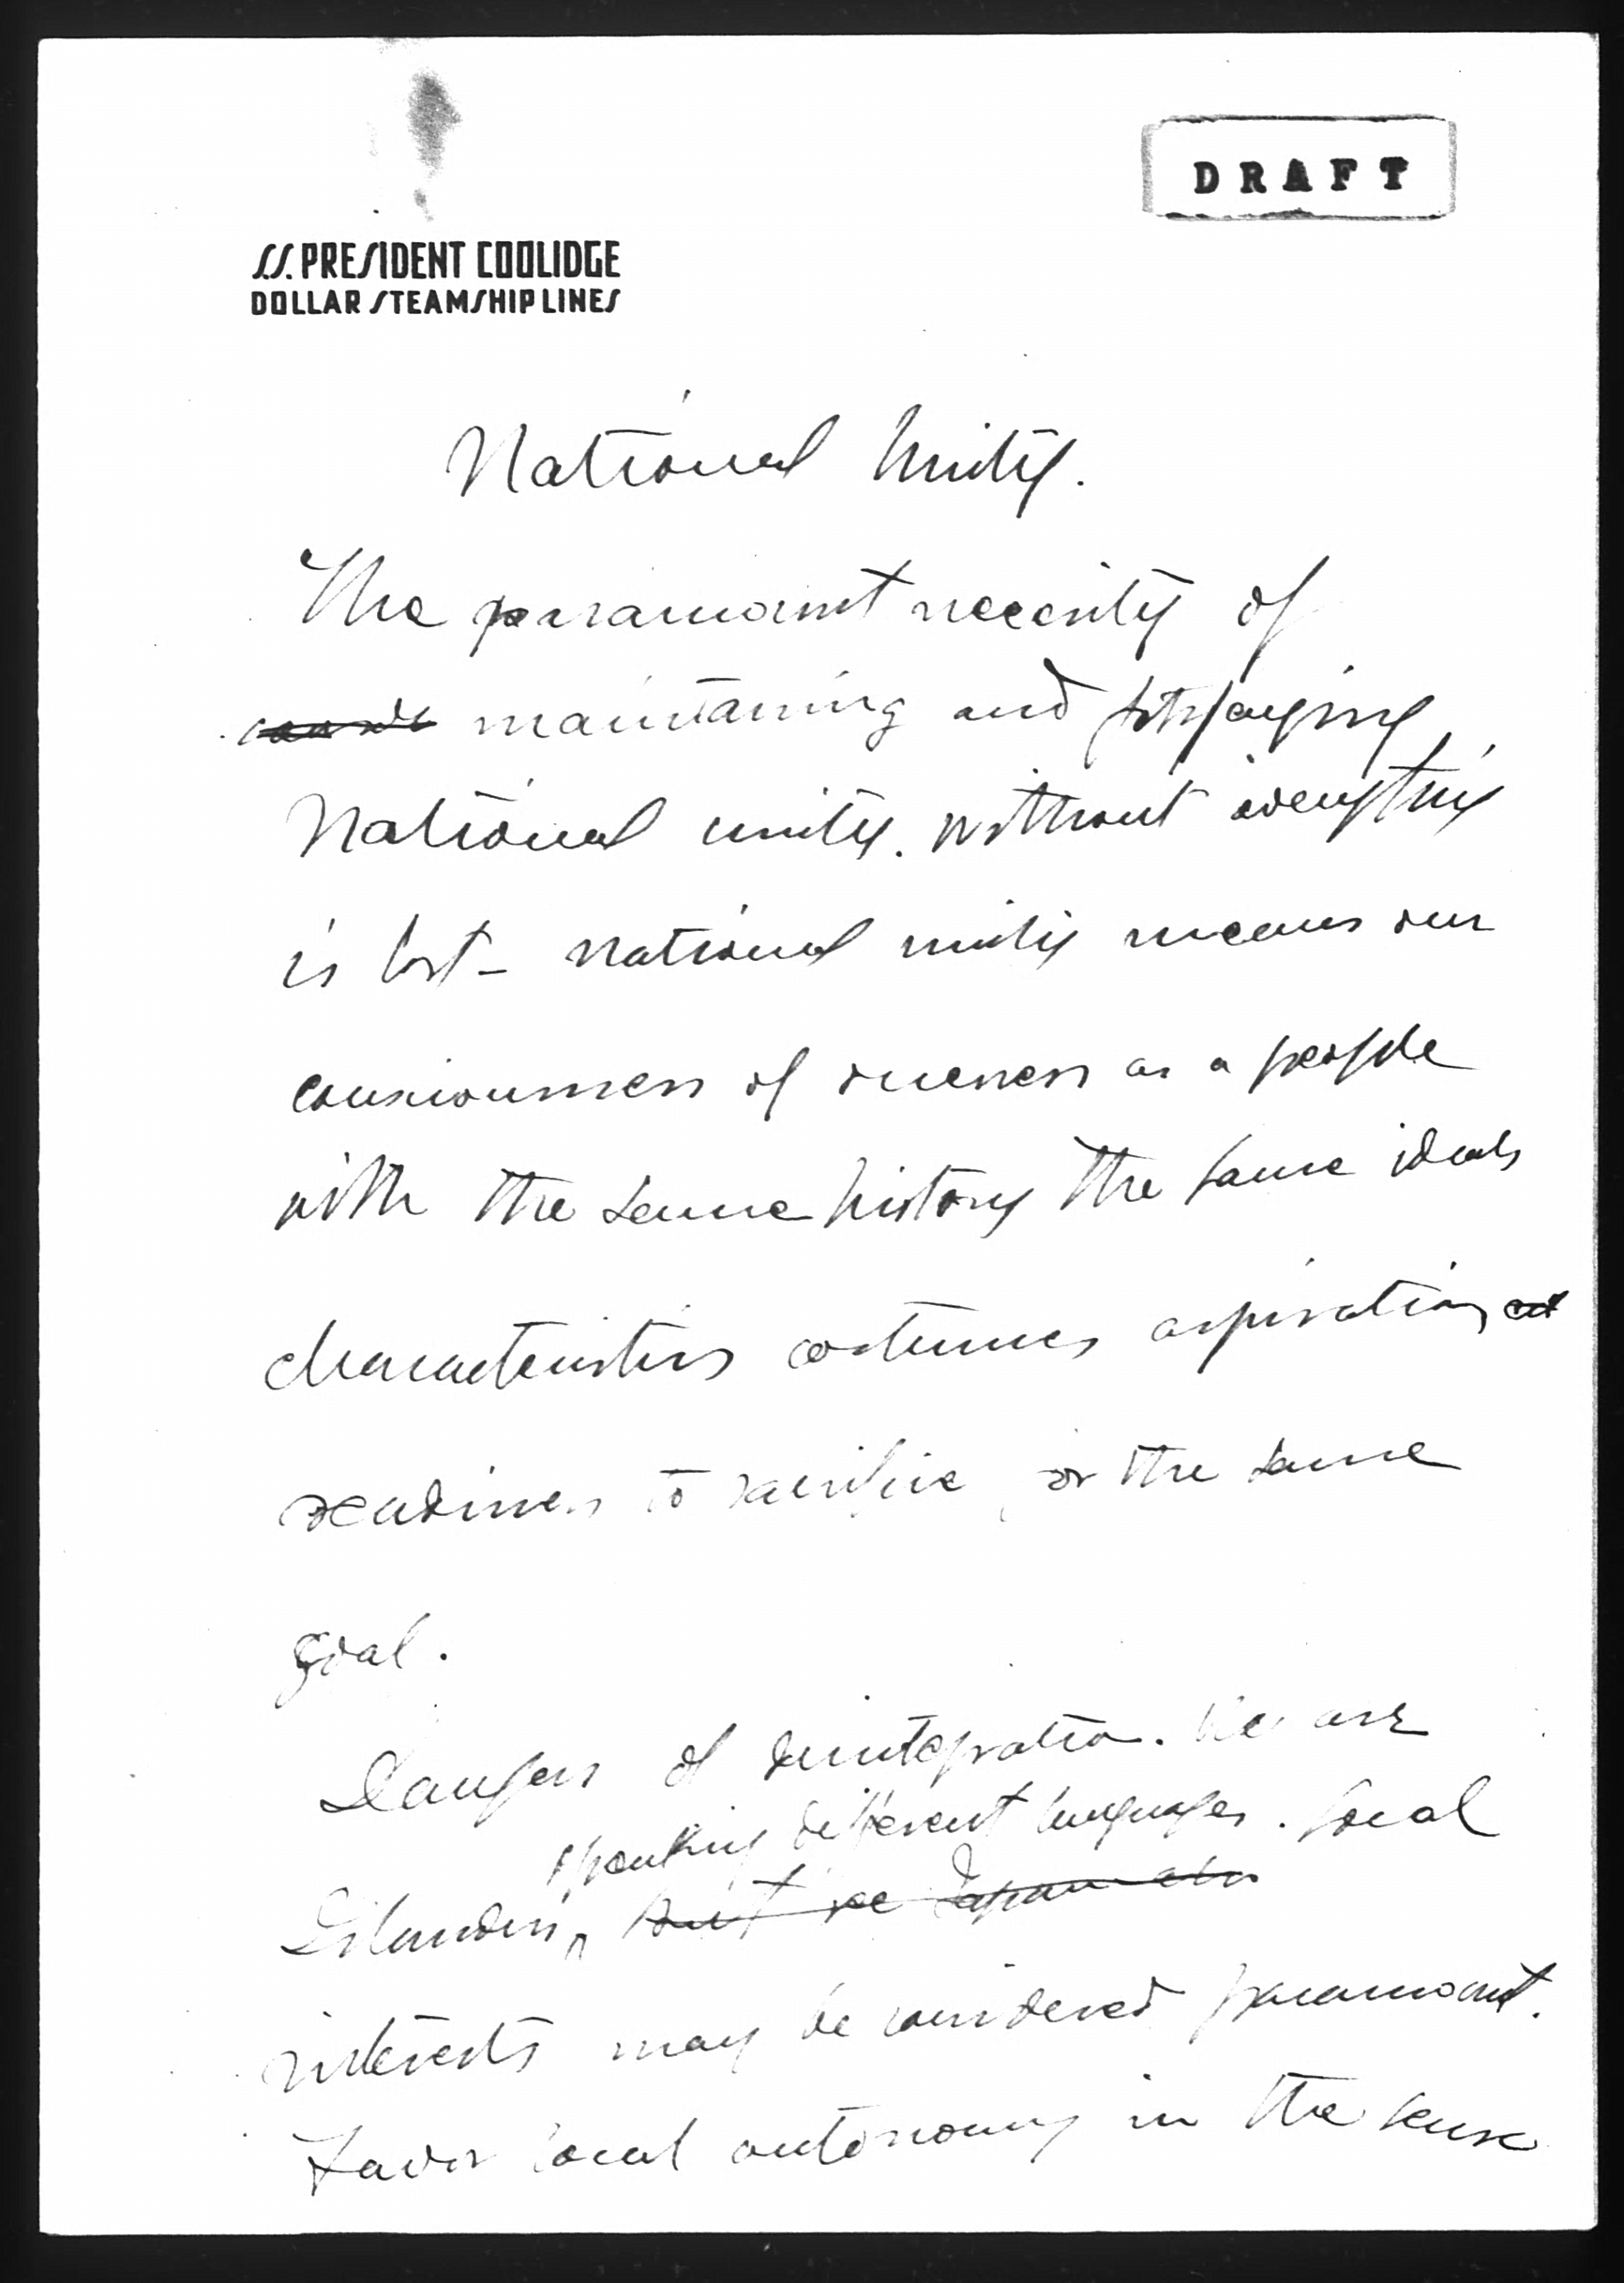 DRAFT
SS. PRESIDENT COOLIDGE
DOLLAR STEAMSHIP LINES
National Unity.
The paramount necesity of
maintaining and
National unity. Without everything
is lost - National unity means our
consciousness of oneness as a people
with the same history the same ideals
characteristics costumes aspirations and
readiness to sacrifice for the same
goal.
Dangers of disintegration. We are
speaking different languages. Local
Islanders, but we
interests may be considered paramount.
Favor local autonomy in the sense